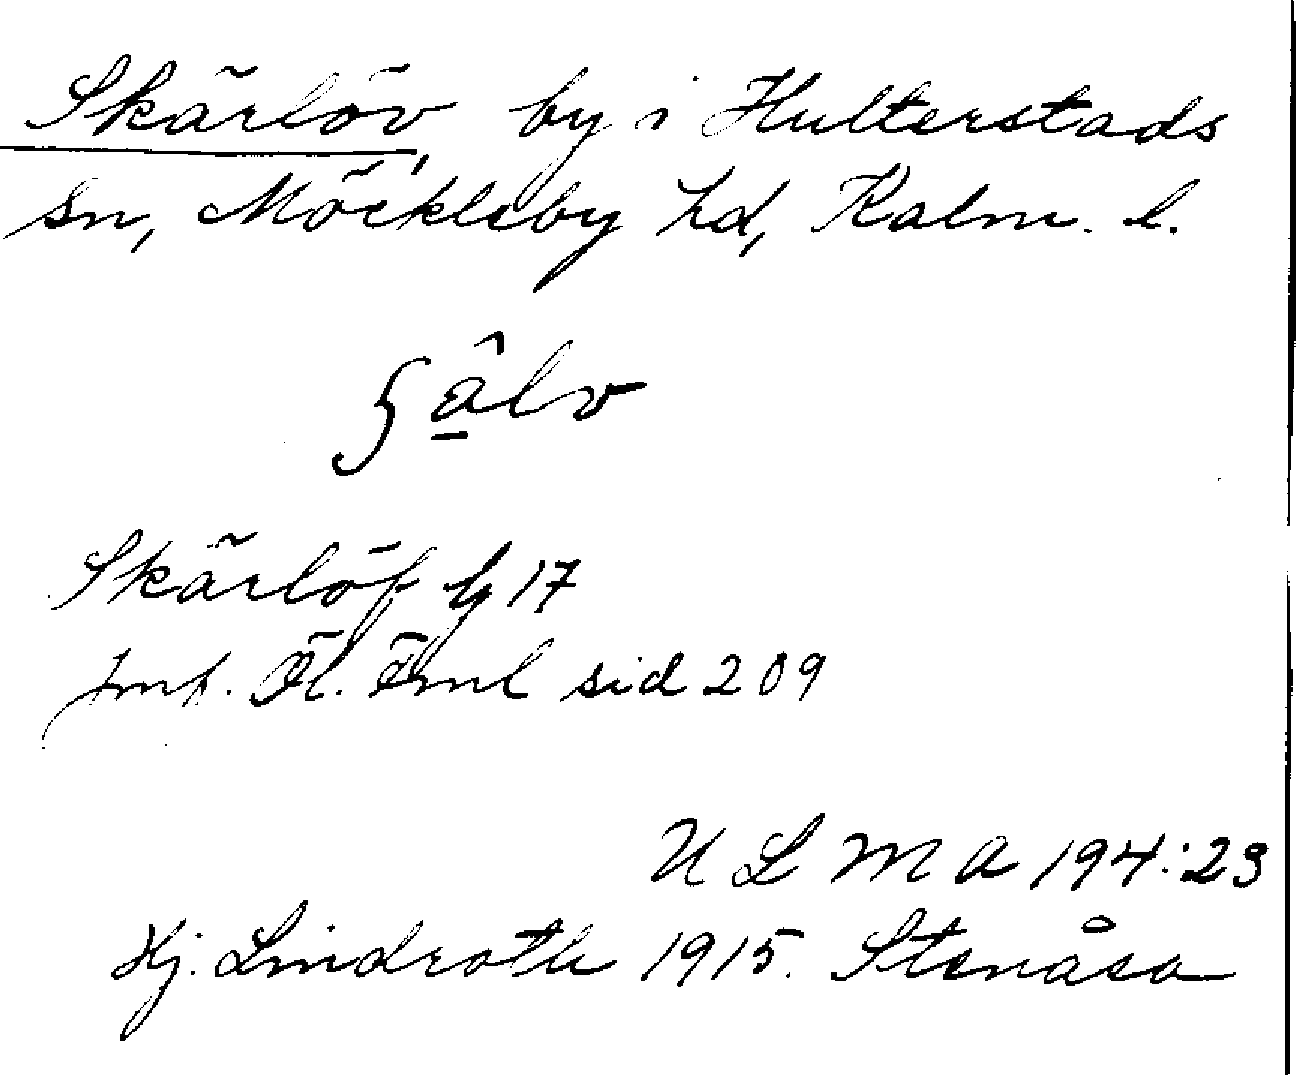 Skärlöv, by i Hulterstads
sn, Möckleby hd, Kalm. l.
ʃâ̱lv
Skärlöf by 17
Jmf. Öl. Fml sid 209
ULMA 194:23
Hj. Lindroth 1915. Stenåsa